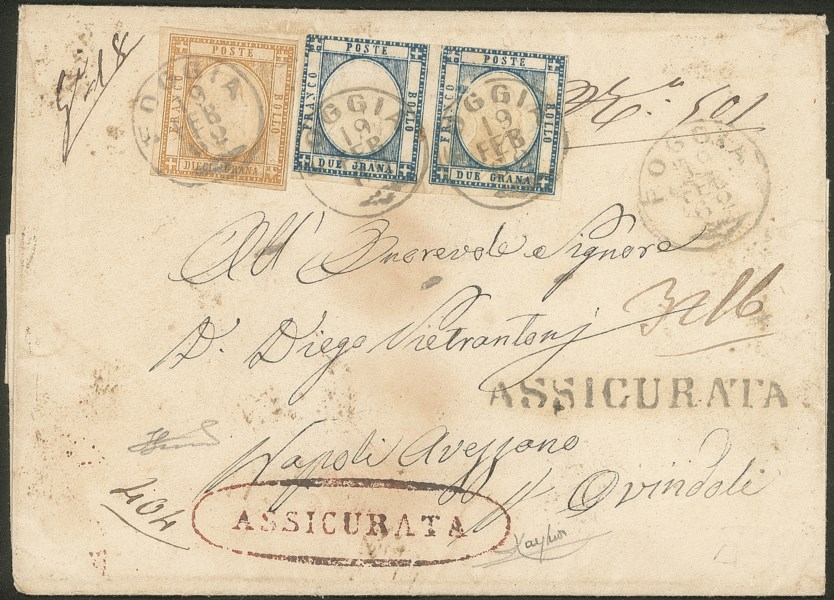 POSTE
FRANCO
BOLLO
DIECI GRANA
POSTE
FRANCO
BOLLO
DUE GRANA
POSTE
FRANCO
BOLLO
DUE GRANA
FOGGIA
19
FEB
62
FOGGIA
19
FEB
FOGGIA
19
FEB
FOGGIA
19
FEB
62
501
All' Onorevole Signore
D. Diego Vietrantonj
ASSICURATA
Napoli Avezzano
Ovindoli
404
ASSICURATA